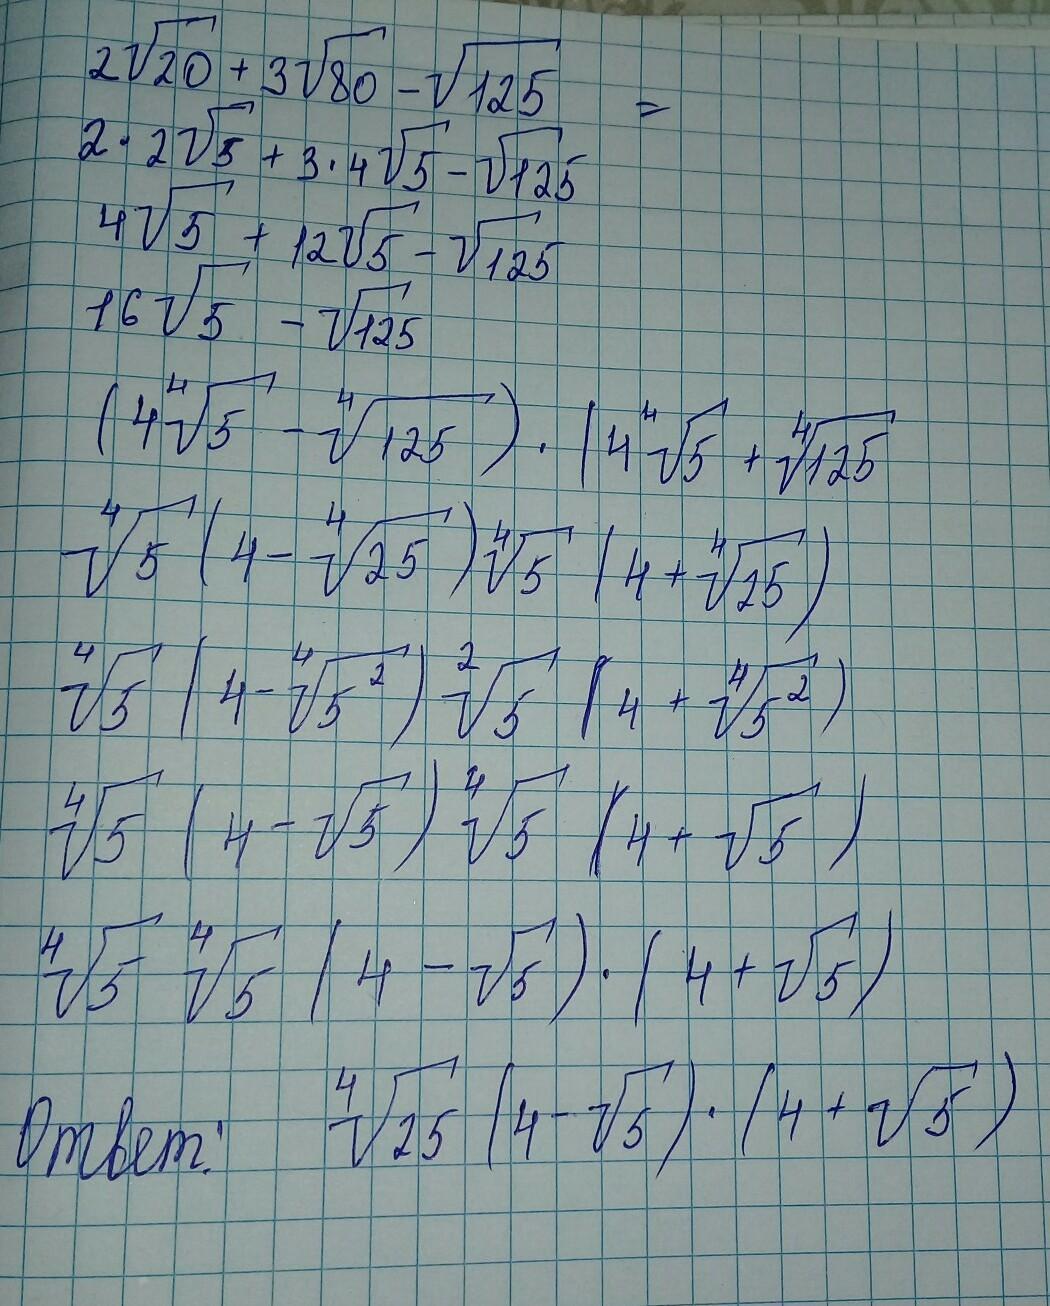 2√20 + 3√80 - √125 =
2·2√5 + 3·4√5 - √125
4√5 + 12√5 - √125
16√5 - √125
(4⁴√5 - ⁴√125)·(4⁴√5 + ⁴√125
⁴√5 (4 - ⁴√25) ⁴√5 (4 + ⁴√25)
⁴√5 (4 - ⁴√5²) ²√5 (4 + ⁴√5²)
⁴√5 (4 - √5) ⁴√5 (4 + √5)
⁴√5 ⁴√5 (4 - √5)·(4 + √5)
Ответ: ⁴√25 (4 - √5)·(4 + √5)